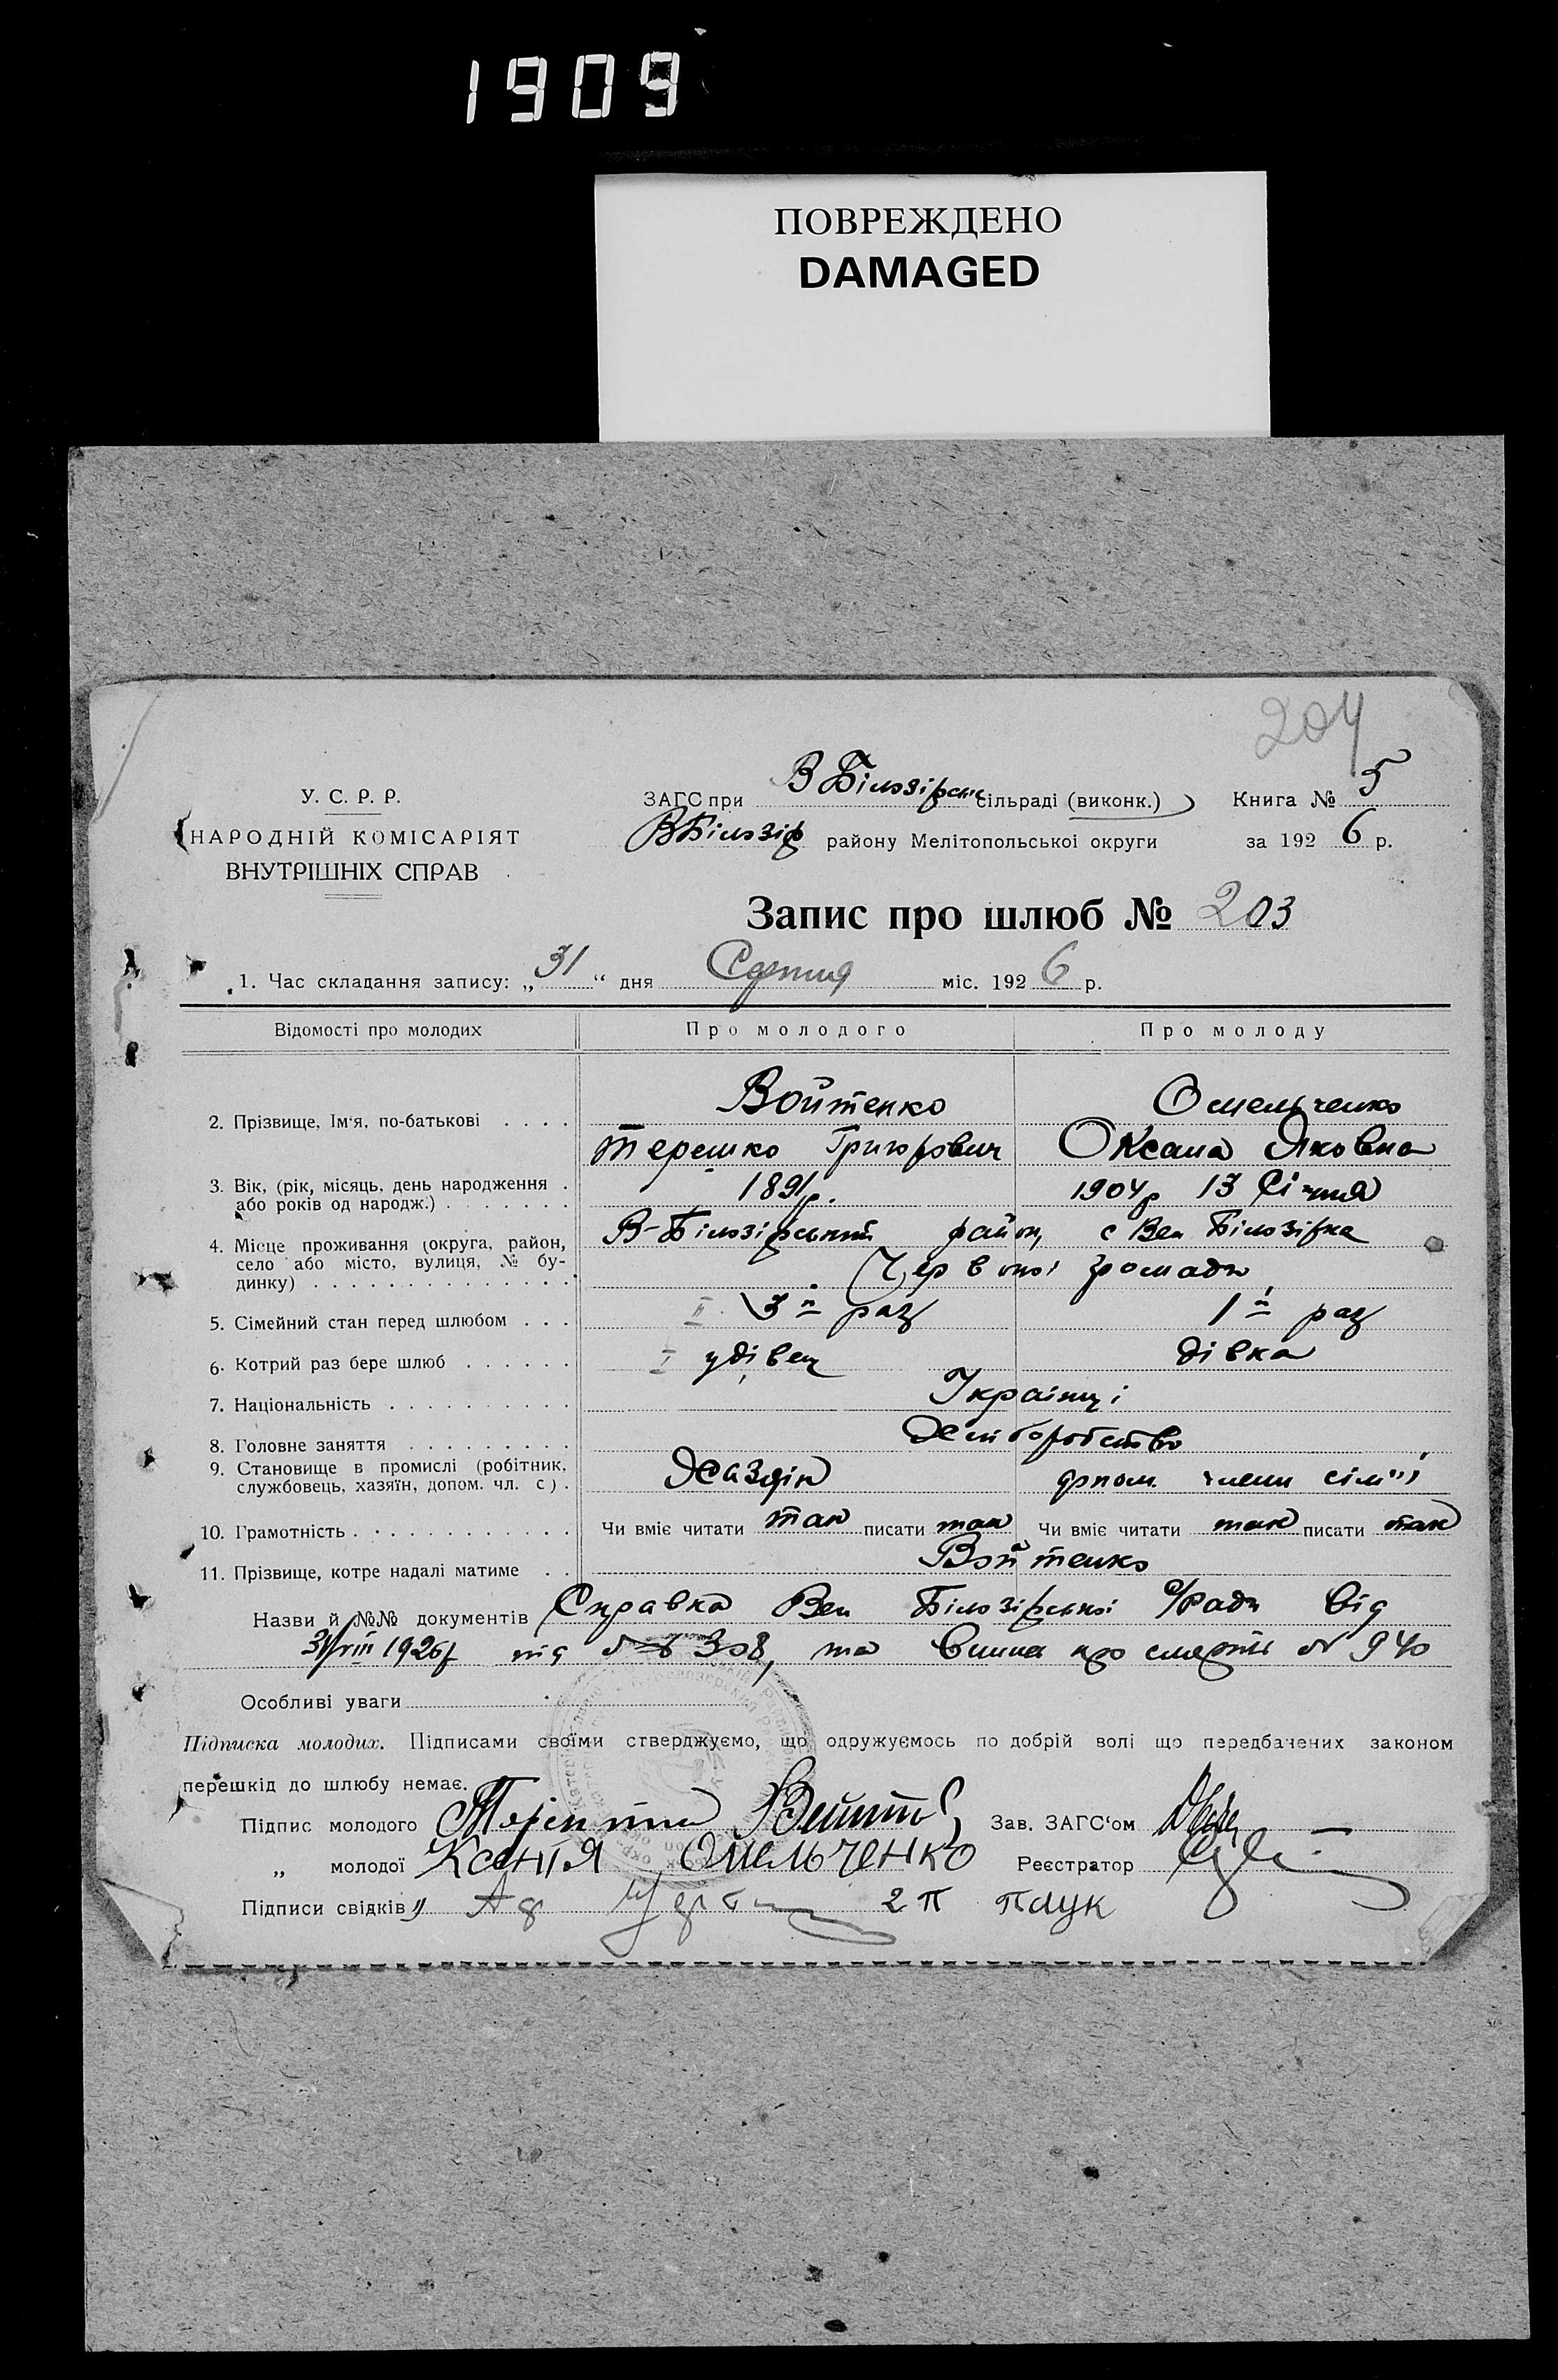 1909
ПОВРЕЖДЕНО
DAMAGED
204
У. С. Р. Р.
НАРОДНІЙ КОМІСАРІЯТ
ВНУТРІШНІХ СПРАВ
ЗАГС при В Білозірськ сільраді (виконк.) Книга № 5
ВБілозір району Мелітопольськоі округи за 1926 р.
Запис про шлюб № 203
1. Час складання запису: „31“ дня Серпня міс. 1926 р.
Відомості про молодих Про молодого Про молоду
2. Прізвище, Ім‘я, по-батькові Войтенко Омельченко
Терешко Григорович Оксана Яковна
3. Вік, (рік, місяць, день народження або років од народж.) 1891р. 1904р 13 Січня
4. Місце проживання (округа, район, село або місто, вулиця, № будинку) В-Білозірський район, с Вел Білозірка
Червоної громади
5. Сімейний стан перед шлюбом II 3й раз 1й раз
6. Котрий раз бере шлюб I удівец дівка
7. Національність Українці
8. Головне заняття Хліборобство
9. Становище в промислі (робітник, службовець, хазяїн, допом. чл. с). Хазяїн допом. члени сім"ї
10. Грамотність Чи вміє читати так писати так Чи вміє читати так писати так
11. Прізвище, котре надалі матиме Войтенко
Назви й №№ документів Справка Вел Білозірської с/Ради від
31/VIII 1926р під № 308, та виписка про смерть № 940
Особливі уваги
Підписка молодих. Підписами своїми стверджуємо, що одружуємось по добрій волі що передбачених законом
перешкід до шлюбу немає.
Підпис молодого Зав. ЗАГС‘ом
„ молодої Ксенія Омельченко Реєстратор
Підписи свідків 1) 2 П Паук